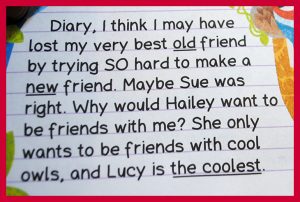 Diary, I think I may have
lost my very best old friend
by trying SO hard to make a
new friend. Maybe Sue was
right. Why would Hailey want to
be friends with me? She only
wants to be friends with cool
owls, and Lucy is the coolest.